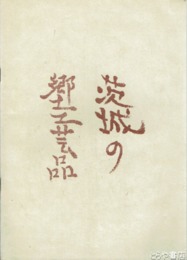 茨城の
郷土工芸品